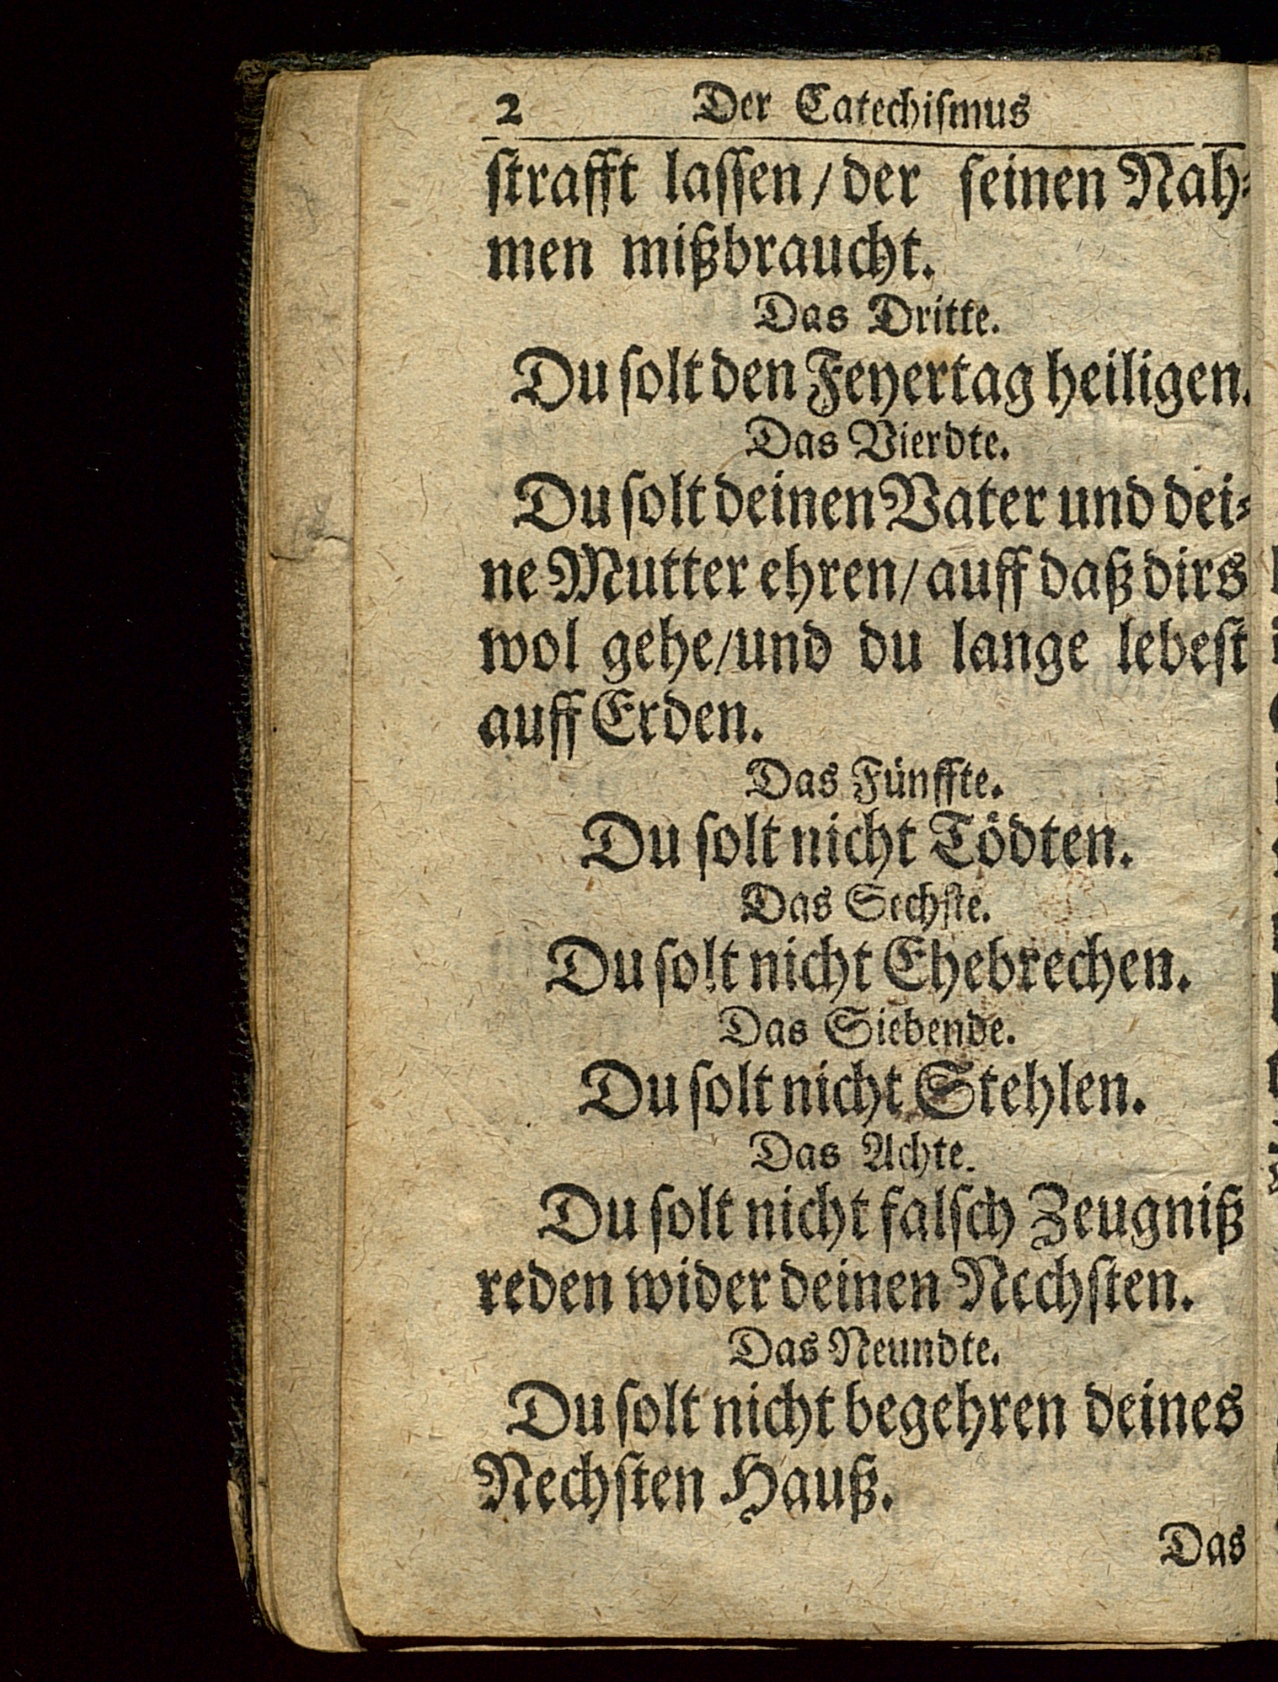 2 Der Catechiſmus
ſtrafft laſſen / der ſeinen Nah⸗
men mißbraucht.
Das Dritte.
Du ſolt den Feyertag heiligen.
Das Vierdte.
Du ſolt deinen Vater und dei⸗
ne Mutter ehren / auff daß dirs
wol gehe / und du lange lebeſt
auff Erden.
Das Fünffte.
Du ſolt nicht Tödten.
Das Sechſte.
Du ſolt nicht Ehebrechen.
Das Siebende.
Du ſolt nicht Stehlen.
Das Achte.
Du ſolt nicht falſch Zeugniß
reden wider deinen Nechſten.
Das Neundte.
Du ſolt nicht begehren deines
Nechſten Hauß.
Das